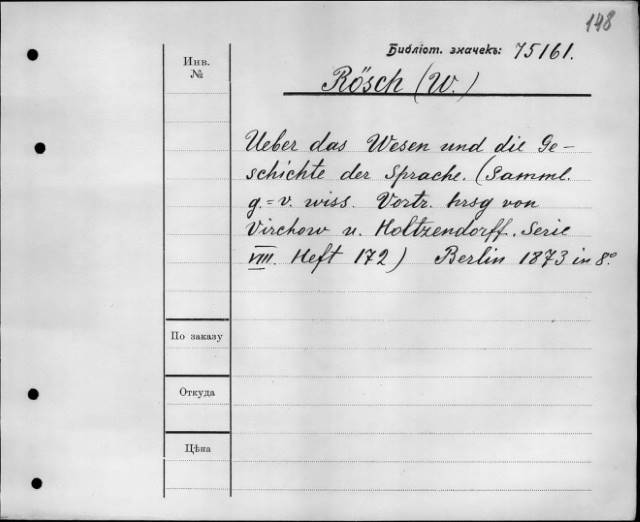 148
Библіот. значекъ: 75161.
Инв.
№
Rösch (W.)
Ueber das Wesen und die Ge-
schichte der Sprache. (Samml.
g.=v. wiss. Vortr. hrsg von
Virchow u. Holtzendorff. Serie
VIII. Heft 172) Berlin 1873 in 8º
По заказу
Откуда
Цѣна